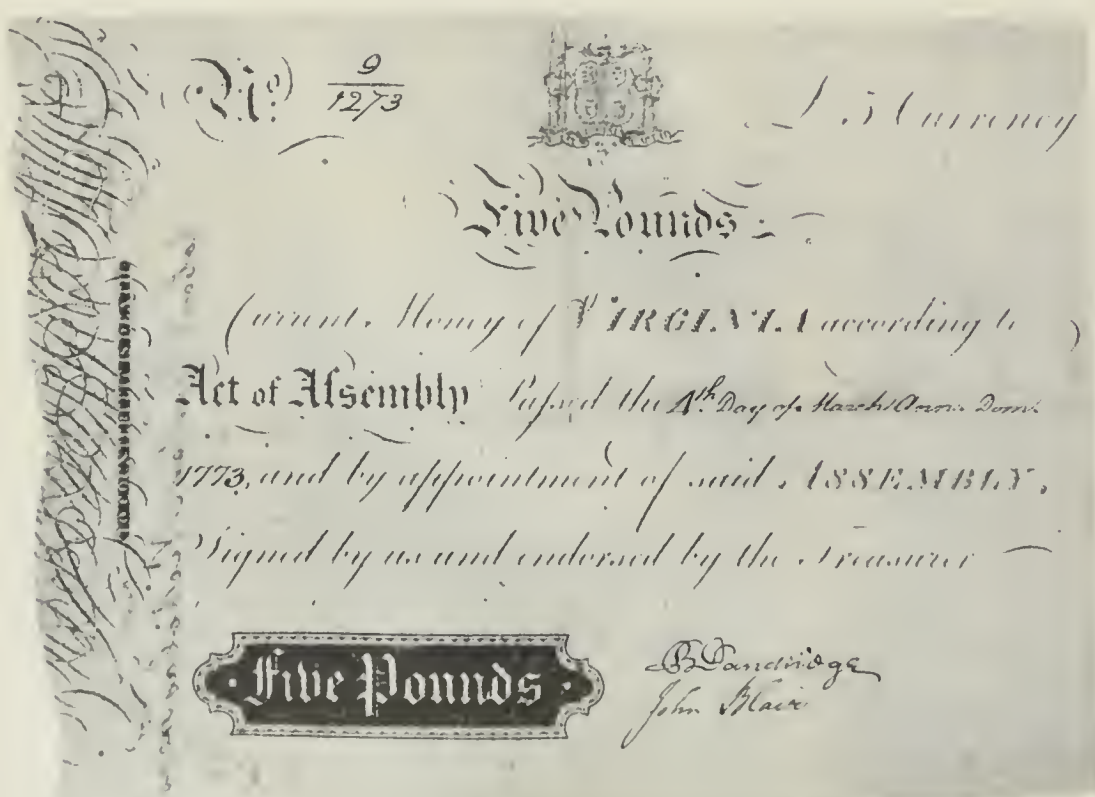 No. 9/1273
£ 5 Currency
Five Pounds
Current Money of VIRGINIA according to
Act of Aſsembly Paſsed the 4th. Day of March Anno Dom:
1773, and by appointment of said ASSEMBLY,
Signed by us and endorsed by the Treasurer
Five Pounds
B Dandridge
John Blair